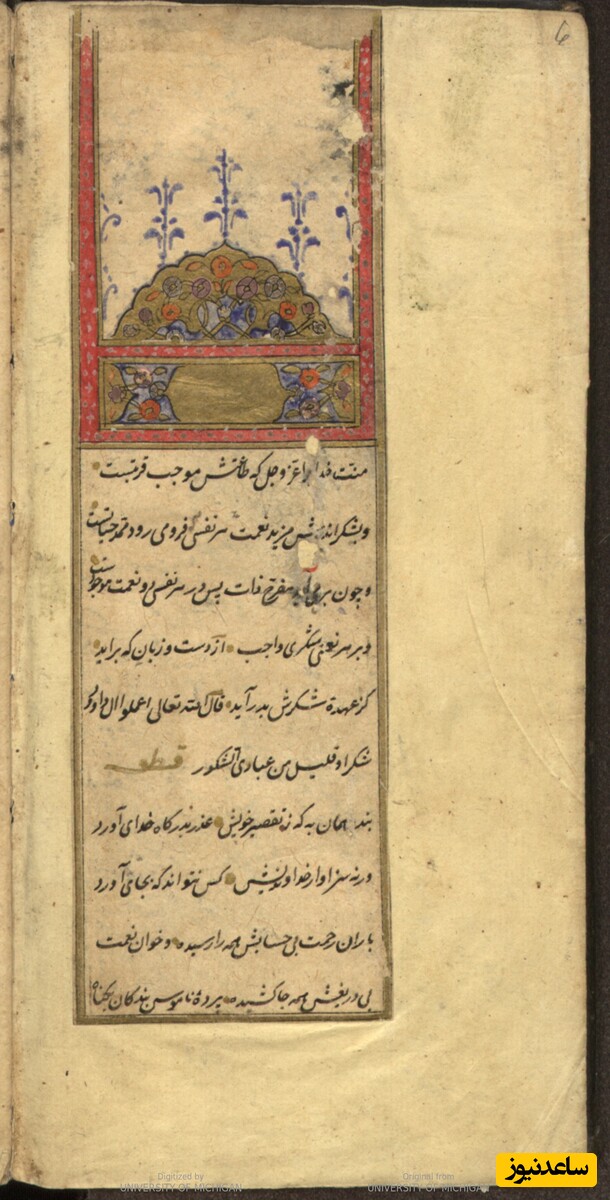 ۶
منت خدا را عز و جل که طاعتش موجب قربتست
و بشکر اندرش مزید نعمت هر نفسی فرو می رود ممد حیاتست
و چون بر می آید مفرح ذات پس در هر نفسی دو نعمت موجودست
و بر هر نعمتی شکری واجب از دست و زبان که براید
کز عهدۀ شکرش بدر آید قال الله تعالی اعملوا ال داود
شکرا و قلیل من عبادی الشکور قطعه
بنده همان به که ز تقصیر خویش عذر بدرکاه خدای آورد
ورنه سزاوار خداوندیش کس نتواند که بجای آورد
باران رحمت بی حسابش همه را رسیده و خوان نعمت
بی دریغش همه جا کشیده پردۀ ناموس بندکان بکناه
Digitized by
UNIVERSITY OF MICHIGAN
Original from
UNIVERSITY OF MICHIGAN
ساعدنیوز